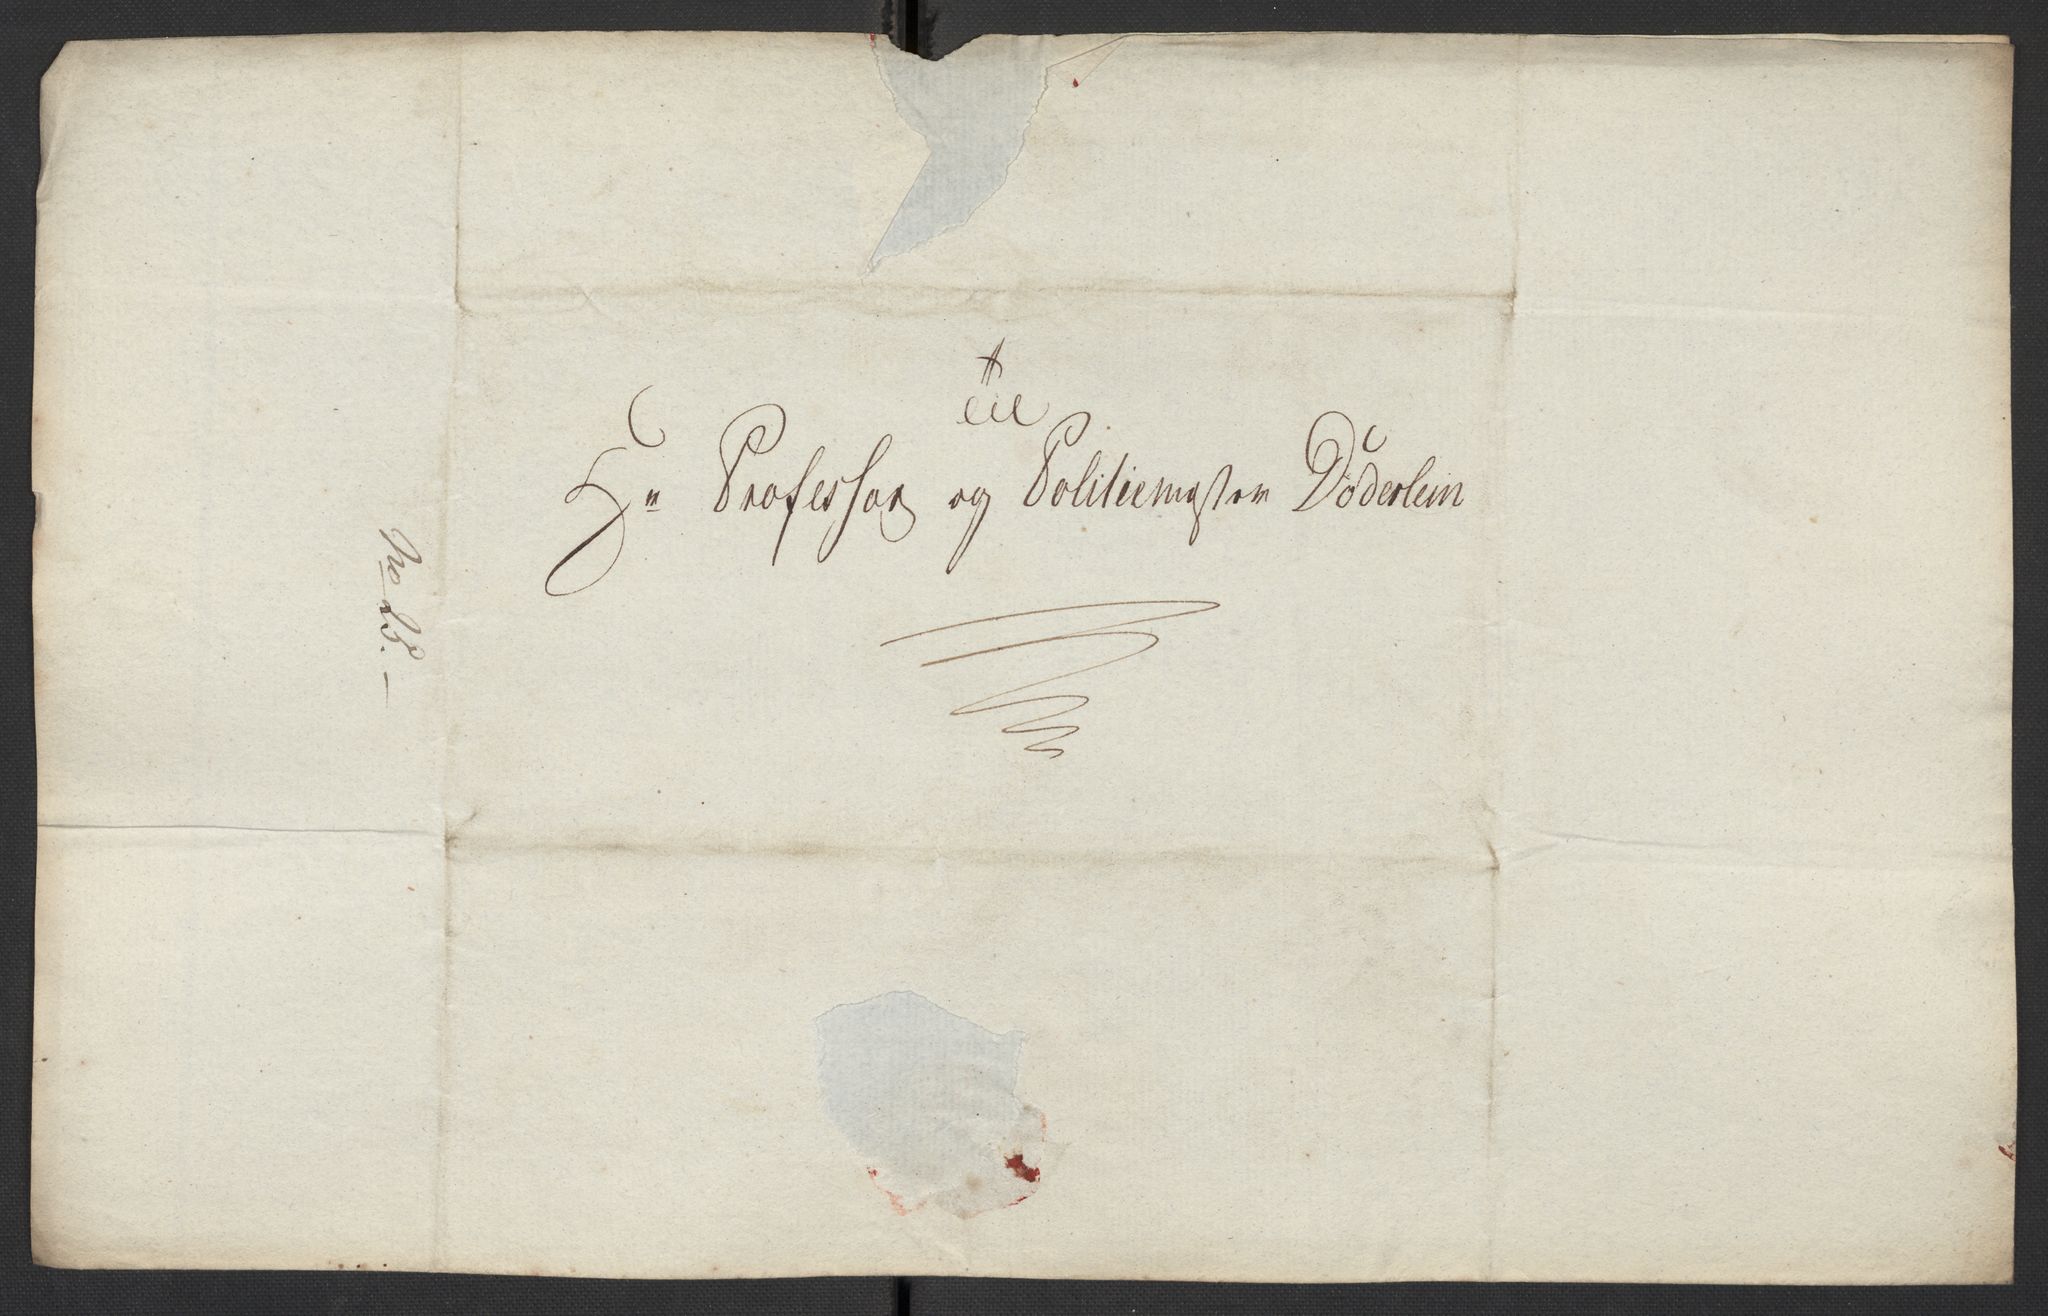 Til
Hr Professor og Politiemester Döderlein
No 25.